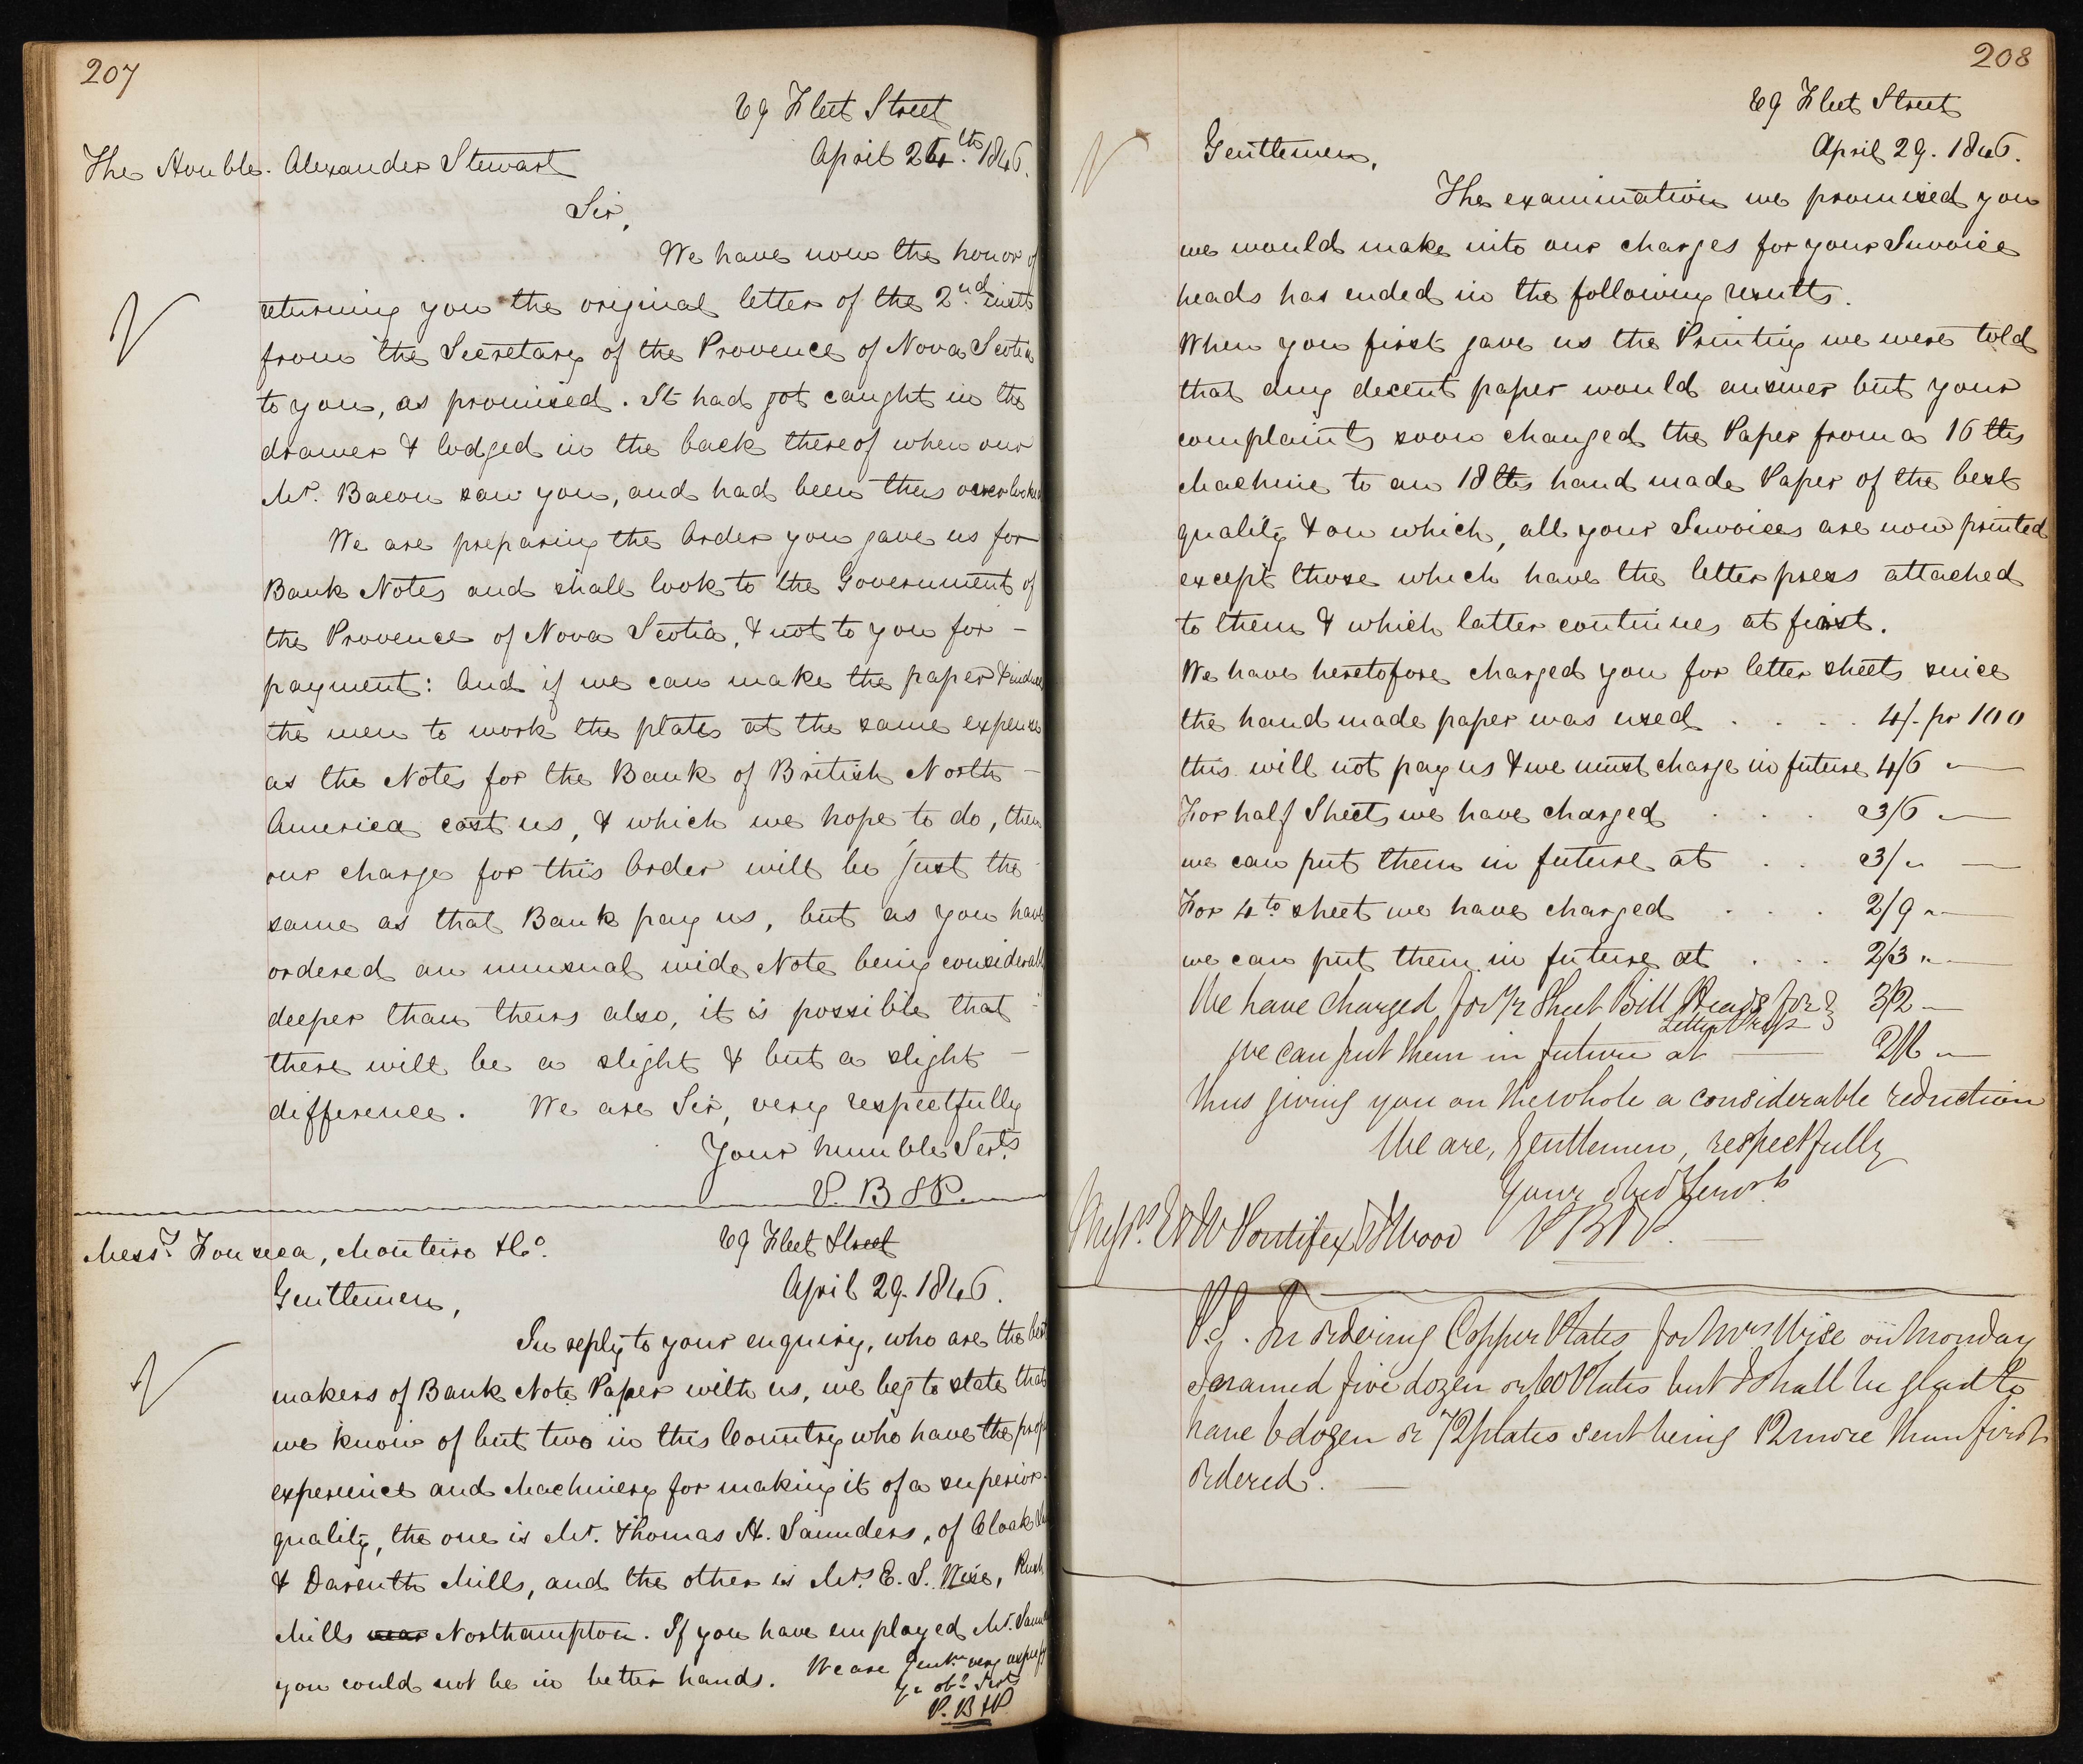 207
69 Fleet Street
April 24th. 1846.
The Honble. Alexander Stewart
Sir,
We have now the honor of
returning you the original letter of the 2nd. instt
from the Secretary of the Provence of Nova Scotia
to you, as promised. It had got caught in the
drawer & lodged in the back thereof when our
Mr. Bacon saw you, and had been thus overlooked
We are preparing the Order you gave us for
Bank Notes and shall look to the Government of
the Provence of Nova Scotia, & not to you for –
payment: And if we can make the paper & induce
the men to work the plates at the same expense
as the Notes for the Bank of British North –
America cost us, & which we hope to do, then
our charge for this Order will be just the
same as that Bank pay us, but as you have
ordered an unusual wide Note being considerably
deeper than theirs also, it is possible that
there will be a slight & but a slight –
difference. We are Sir, very respectfully
Your humble Servts
P. B & P.
Messrs. Fonseca, Monteiro & Co.
69 Fleet Street
April 29. 1846.
Gentlemen,
In reply to your enquiry, who are the best
makers of Bank Note Paper with us, we beg to state that
we know of but two in this Country who have the prop
experience and Machinery for making it of a superior
quality, the one is Mr. Thomas H. Saunders, of Cloak
& Darenth Mills, and the other is Mrs. E. S. Wise, Rush
Mills near Northampton. If you have employed Mr. Saun
you could not be in better hands. We are Gentn. very respy
Yr. obt. Servts
P. B & P.
208
69 Fleet Street
April 29. 1846.
Gentlemen,
The examination we promised you
we would make into our charges for your Invoice
heads has ended in the following results.
When you first gave us the Printing we were told
that any decent paper would answer but your
complaints soon changed the Paper from a 16 lbs
Machine to an 18 lbs hand made Paper of the best
quality & on which, all your Invoices are now printed
except those which have the letter press attached
to them & which latter continues at first.
We have heretofore charged you for letter sheets since
the hand made paper was used . . . . 4/- pr 100
this will not pay us & we must charge in future 4/6 "—
For half Sheets we have charged . . . 3/6 "—
we can put them in future at . . 3/" —
For 4to sheet we have charged . . . 2/9 "—
we can put them in future at . . . 2/3 "—
We have charged for ½ Sheet Bill Heads for 3/2 —
Letter Press
we can put them in future at — "—
thus giving you on the whole a considerable reduction
We are, Gentlemen, respectfully
Your obed Servts
Messrs. E & W Pontifex & Wood
P B & P. —
P.S. In ordering Copper Plates for Mrs Wise on Monday
I named five dozen or 60 Plates but I shall be glad to
have 6 dozen or 72 plates sent being 12 more than first
ordered. —